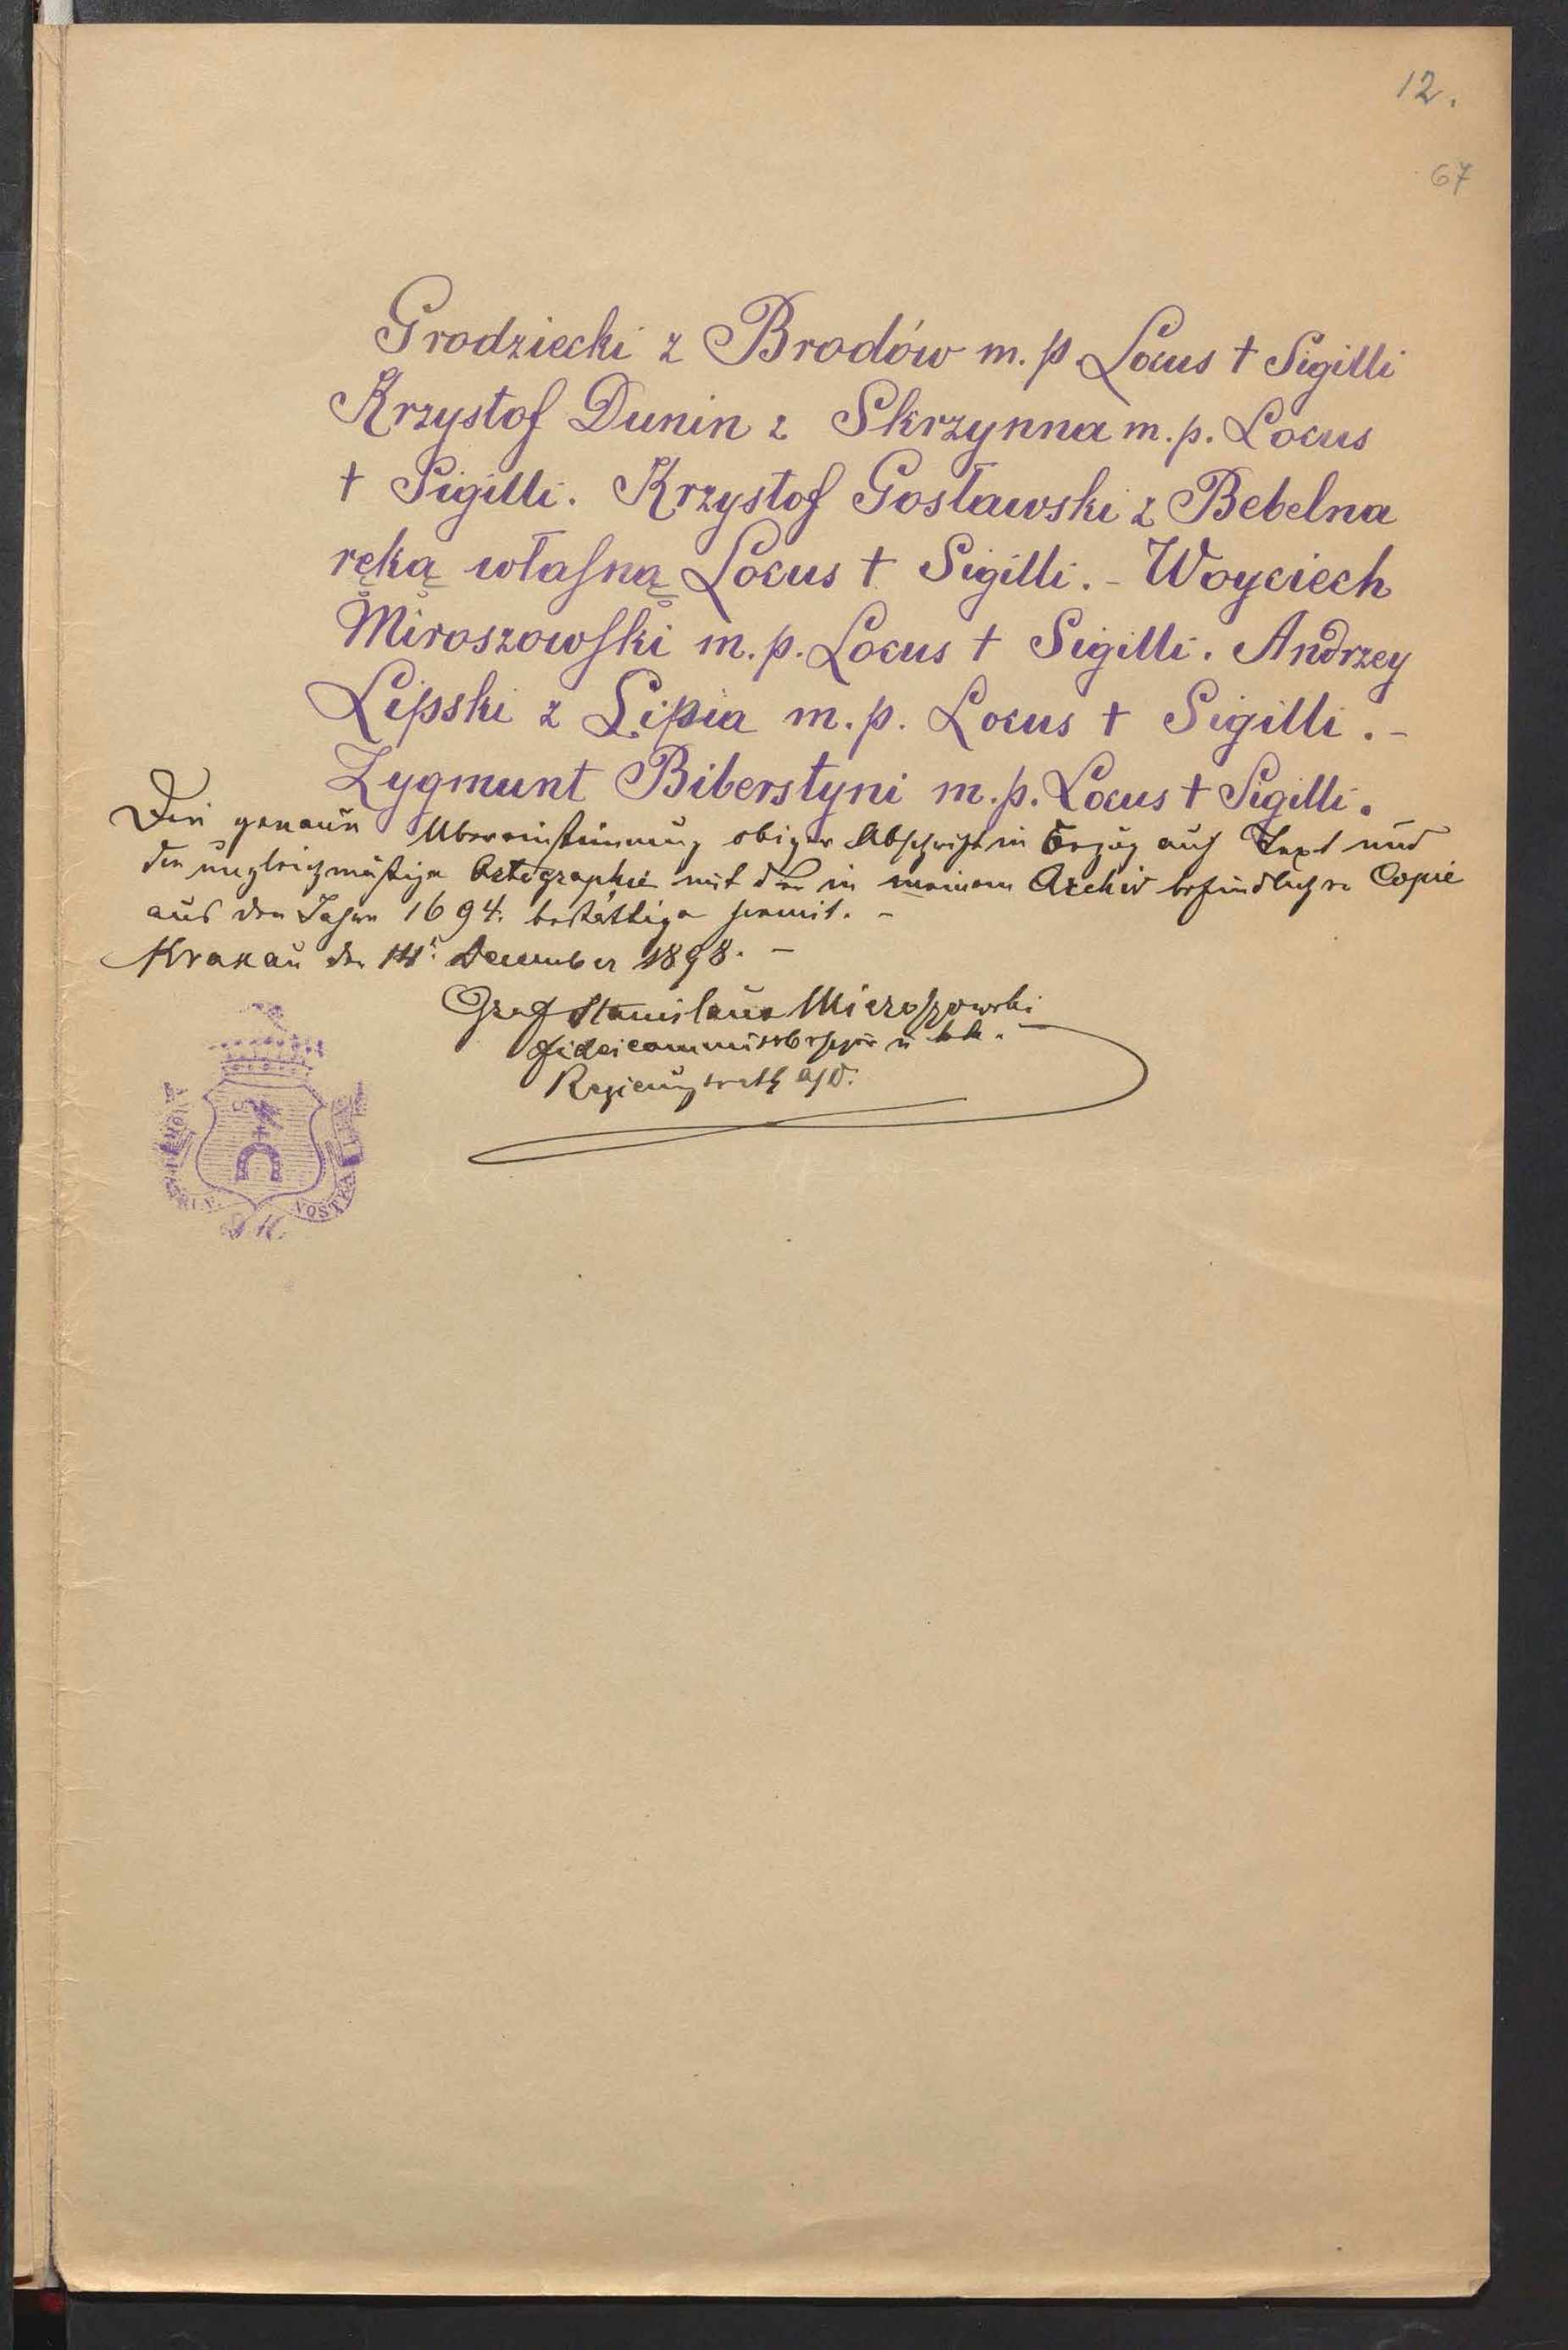 12.
67
Grodziecki z Brodów m. p Locus † Sigilli
Krzystof Dunin z Skrzynna m. p. Locus
† Sigilli. Krzystof Gosławski z Bebelna
ręką właſną Locus † Sigilli. - Woyciech
Miroszowſki m. p. Locus † Sigilli. Andrzey
Lipski z Lipia m. p. Locus † Sigilli. -
Zygmunt Biberstyni m. p. Locus † Sigilli.
Die genaue Übereinstimmung obiger Abschrift in Bezug auf Text und
die ungleichmäßige Ortographie mit der in meinem Archiv befindlichen Copie
aus dem Jahre 1694. bestättige hiemit. -
Krakau den December 1898. -
Graf Stanislaus Mieroszowski
Fideicommissbesitzer u k.k.
Regierungsrath a/D.
VOSTRA